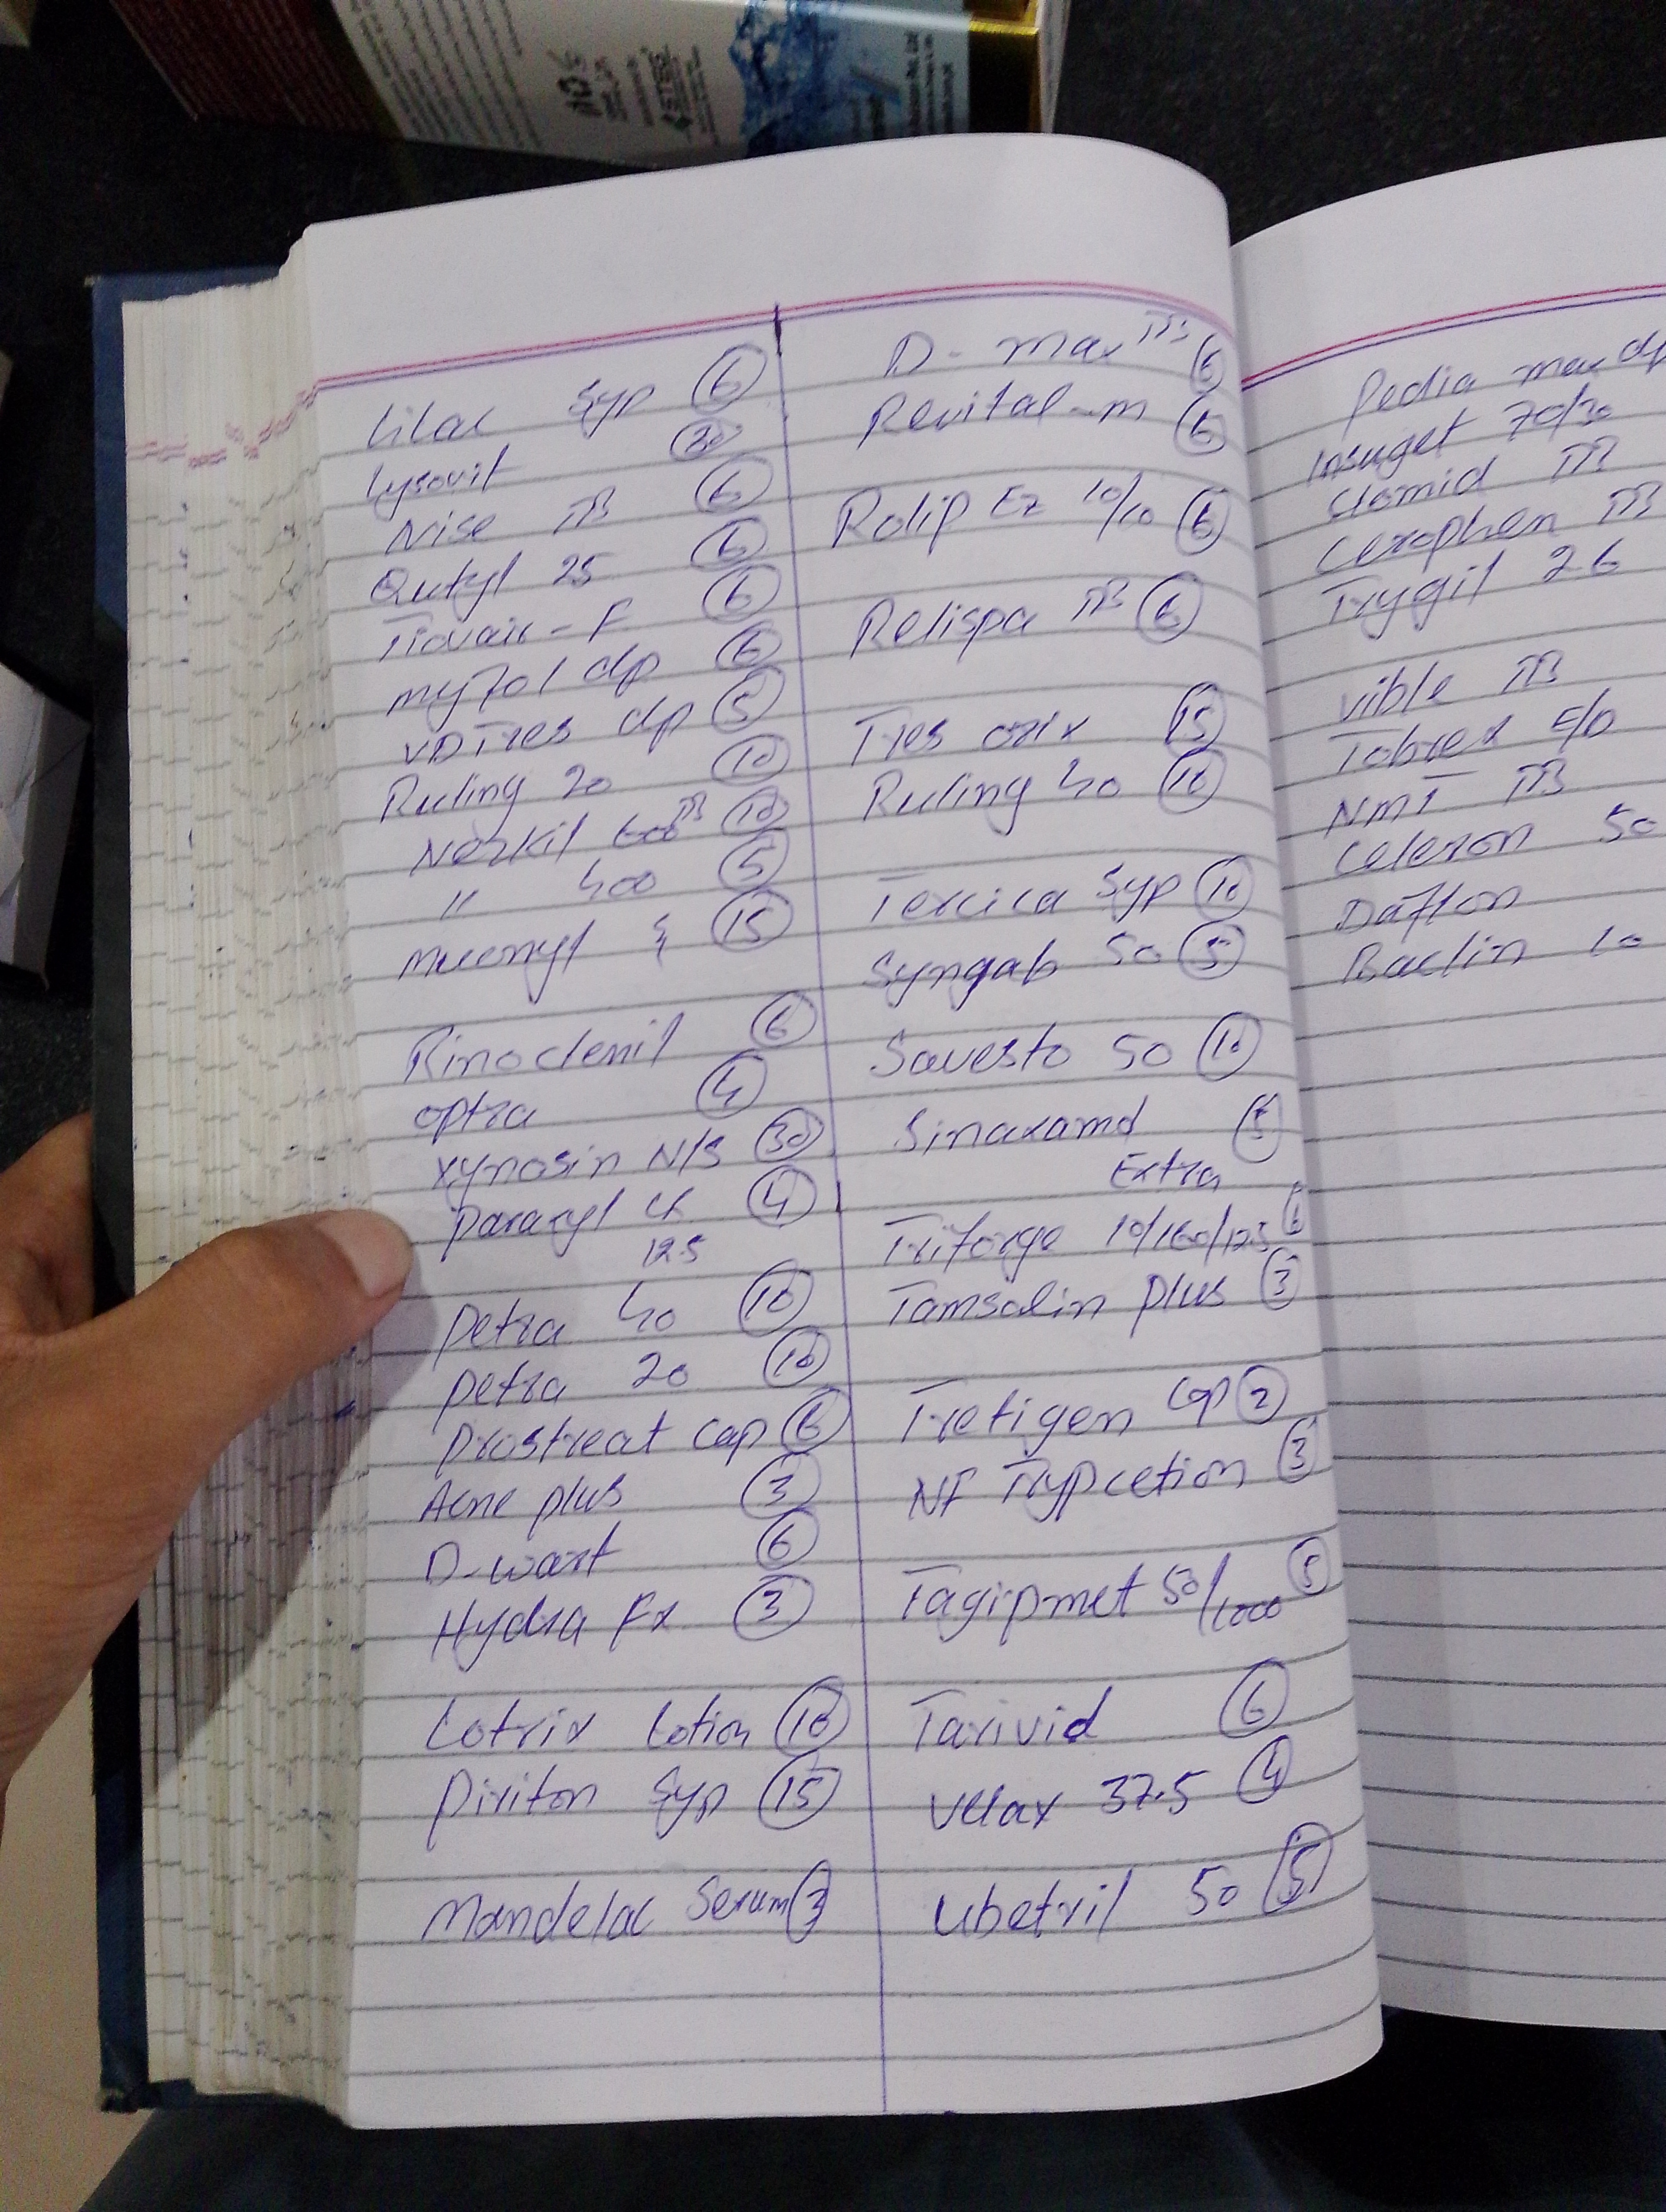 Lilac Syp 6
Lysovit 30
Nise TB 6
Qutyl 25 6
Tiovair-F 6
myfol dp 6
VDTres dp 5
Ruling 20 10
Nezkil 600 TB 10
" 400 5
Mucenyl 15
Rinoclenil 6
optra 4
xynosin N/S 30
paraxyl CR 4
12.5
petra 40 10
petra 20 10
prostreat cap 6
Acne plus 3
D-wart 6
Hydra Fx 3
Lotrix Lotion 10
Piriton Syp 15
Mandelac Serum 3
D-max TB 6
Revital-m 6
Rolip Ez 10/10 6
Relispa TB 6
Tres orix 15
Ruling 40 10
Tercica Syp 10
Syngab 50 5
Savesto 50 10
Sinaxamd 5
Extra
Triforge 10/160/12.5 6
Tamsolin plus 3
Tretigen cap 2
NF Trypcetion 3
Tagipmet 50/1000 5
Tarivid 6
Velax 37.5 4
Ubetril 50 5
Pedia max dp
Insuget 70/30
Clomid TB
Cexophen TB
Trygil 2G
vible TB
Tobrex E/D
NMT TB
Celexon 50
Daflon
Baclin 10